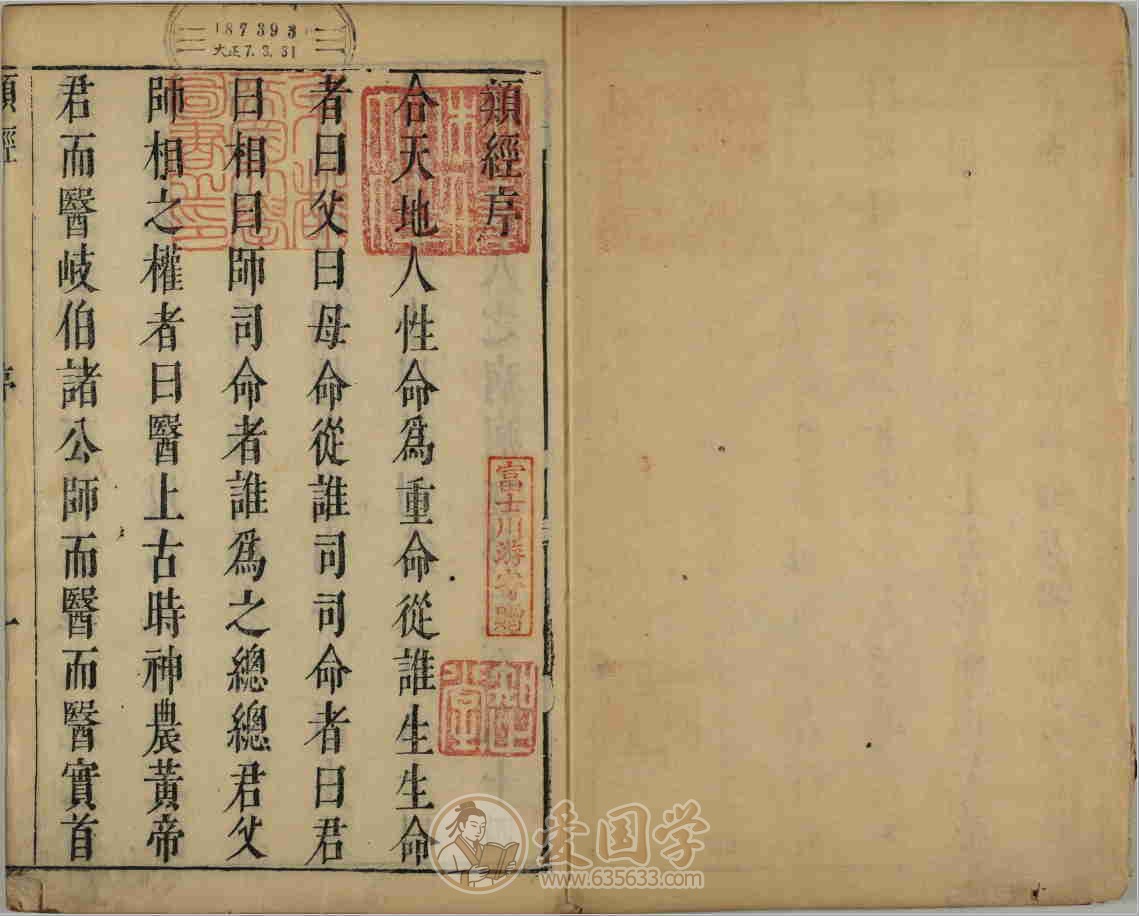 類經序
合天地人性命爲重命從誰生生命
者曰父曰母命從誰司司命者曰君
曰相曰師司命者誰爲之總總君父
師相之權者曰醫上古時神農黃帝
君而醫岐伯諸公師而醫而醫實首
類經 序 一
187393
大正7.3.31
富士川游寄贈
爱国学
www.635633.com